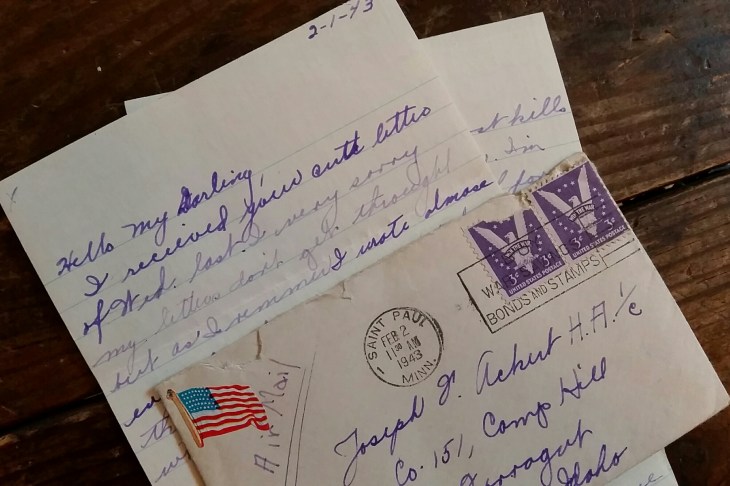 2-1-43
Hello My Darling,
I recieved your cute letter
of Wed. last. I very sorry
my letters don't get throught
but as I remmer I wrote almose
st kills
I'm
for
WIN THE WAR
3¢
UNITED STATES POSTAGE
WIN THE WAR
3¢
UNITED STATES POSTAGE
WAR
BONDS AND STAMPS
SAINT PAUL
FEB 2
11 30 AM
1943
MINN.
1
Air Mail
Joseph F. Ackert H.A. 1/c
Co. 151, Camp Hill
Farragut
Idaho